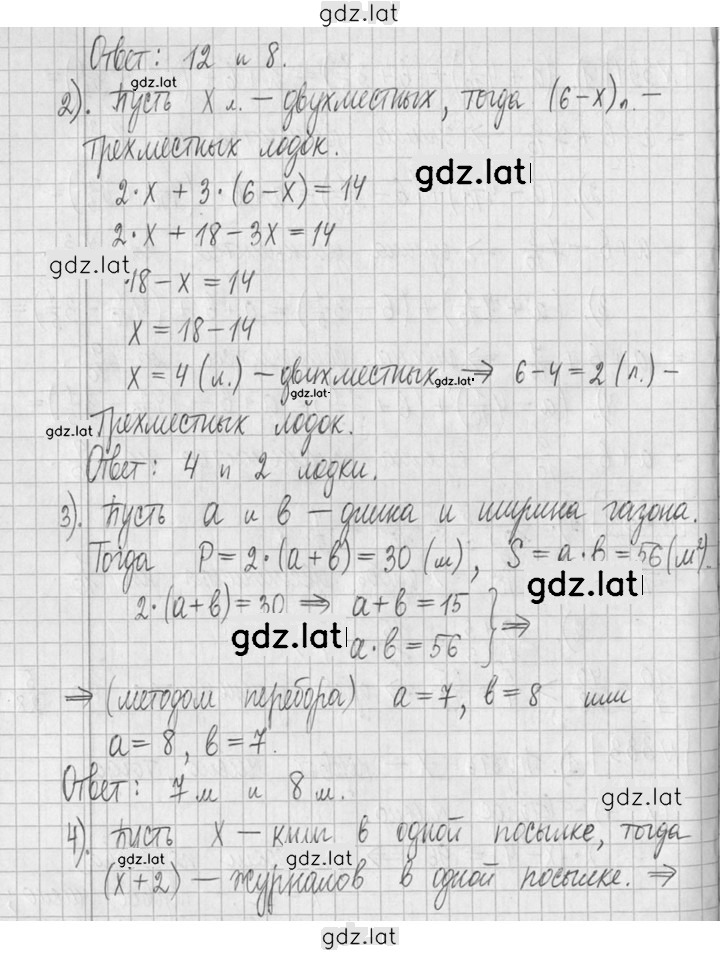 gdz.lat
Ответ: 12 и 8.
gdz.lat
2). Пусть x л. – двухместных, тогда (6-x) л. –
трехместных лодок.
gdz.lat
2·x + 3·(6-x) = 14
2·x + 18 - 3x = 14
gdz.lat
18 - x = 14
x = 18 - 14
x = 4 (л.) – двухместных ⇒ 6-4 = 2 (л.) –
gdz.lat
gdz.lat
gdz.lat
трехместных лодок.
Ответ: 4 и 2 лодки.
3). Пусть a и в – длина и ширина газона.
Тогда P = 2·(a+в) = 30 (м), S = a·в = 56 (м²).
gdz.lat
2·(a+в) = 30 ⇒ a+в = 15 } ⇒
gdz.lat
a·в = 56
⇒ (методом перебора) a = 7, в = 8 или
a = 8, в = 7.
Ответ: 7 м и 8 м.
gdz.lat
4). Пусть x – книг в одной посылке, тогда
gdz.lat
gdz.lat
(x+2) – журналов в одной посылке. ⇒
gdz.lat